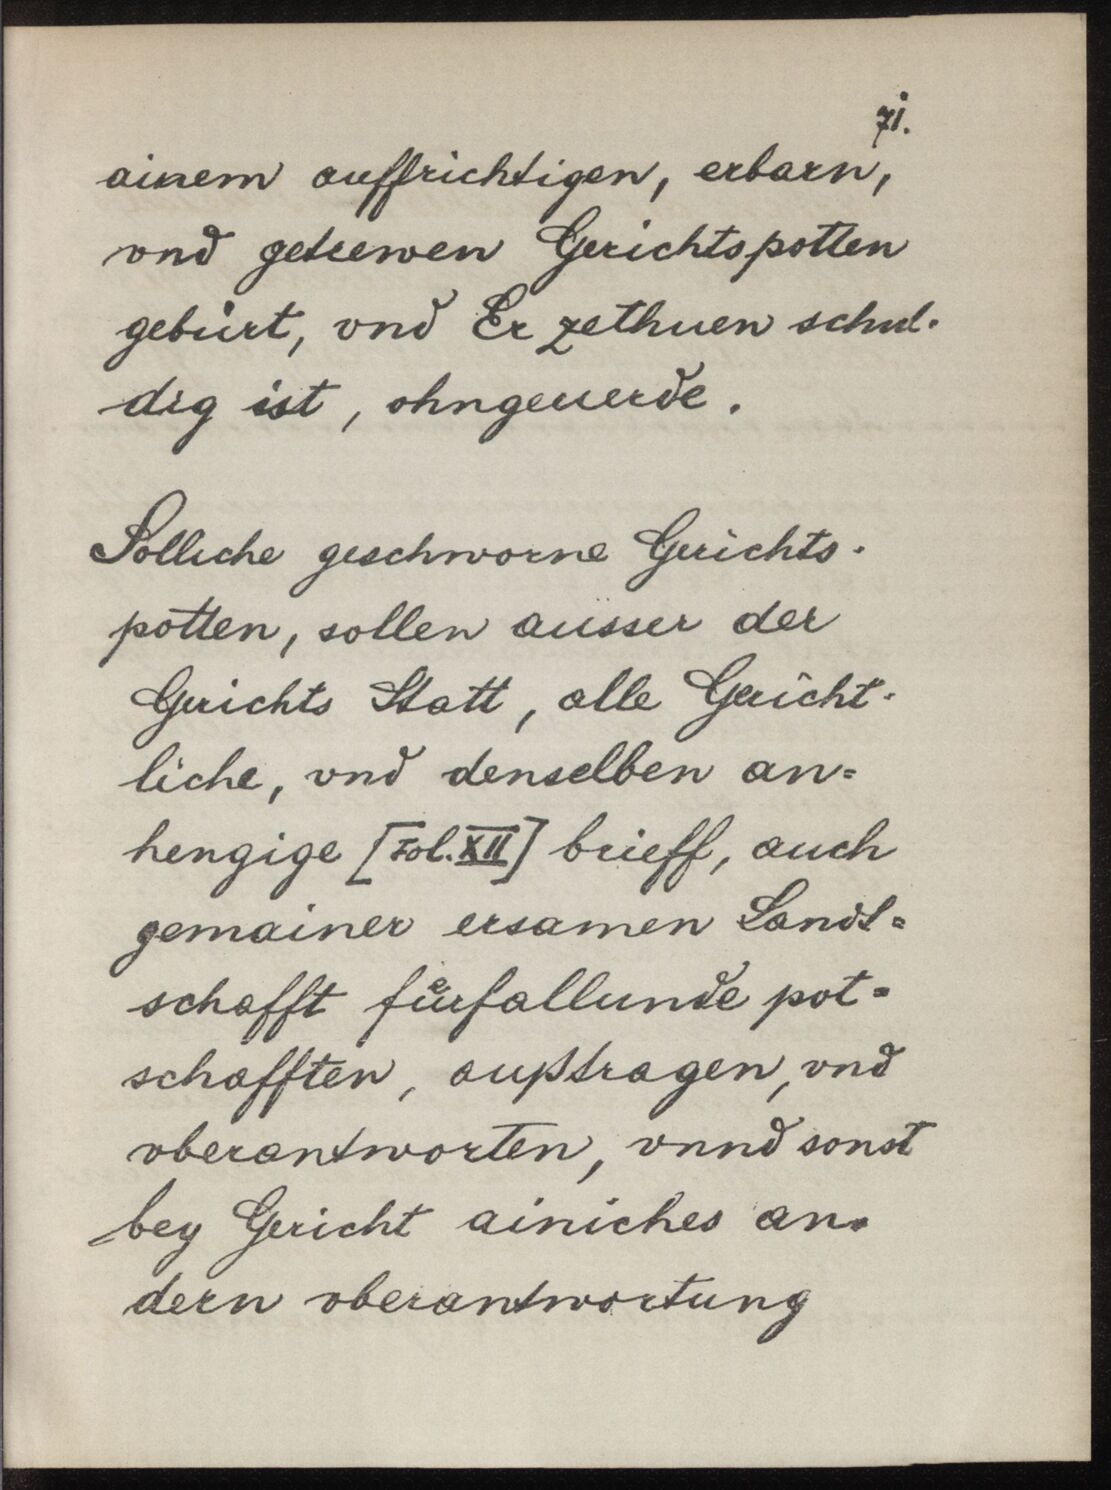 71.
ainem auffrichtigen, erbarn,
vnd getrewen Gerichtspotten
gebürt, vnd Er zethuen schul-
dig ist, ohngeuerde.
Solliche geschworne Gerichts-
potten, sollen ausser der
Gerichts Statt, alle Gericht-
liche, vnd denselben an=
hengige [Fol. XII] brieff, auch
gemainer ersamen Landt=
schafft fürfallunde pot=
schafften, außtragen, vnd
vberantworten, vnnd sonst
bey Gericht ainiches an=
dern vberantwortung